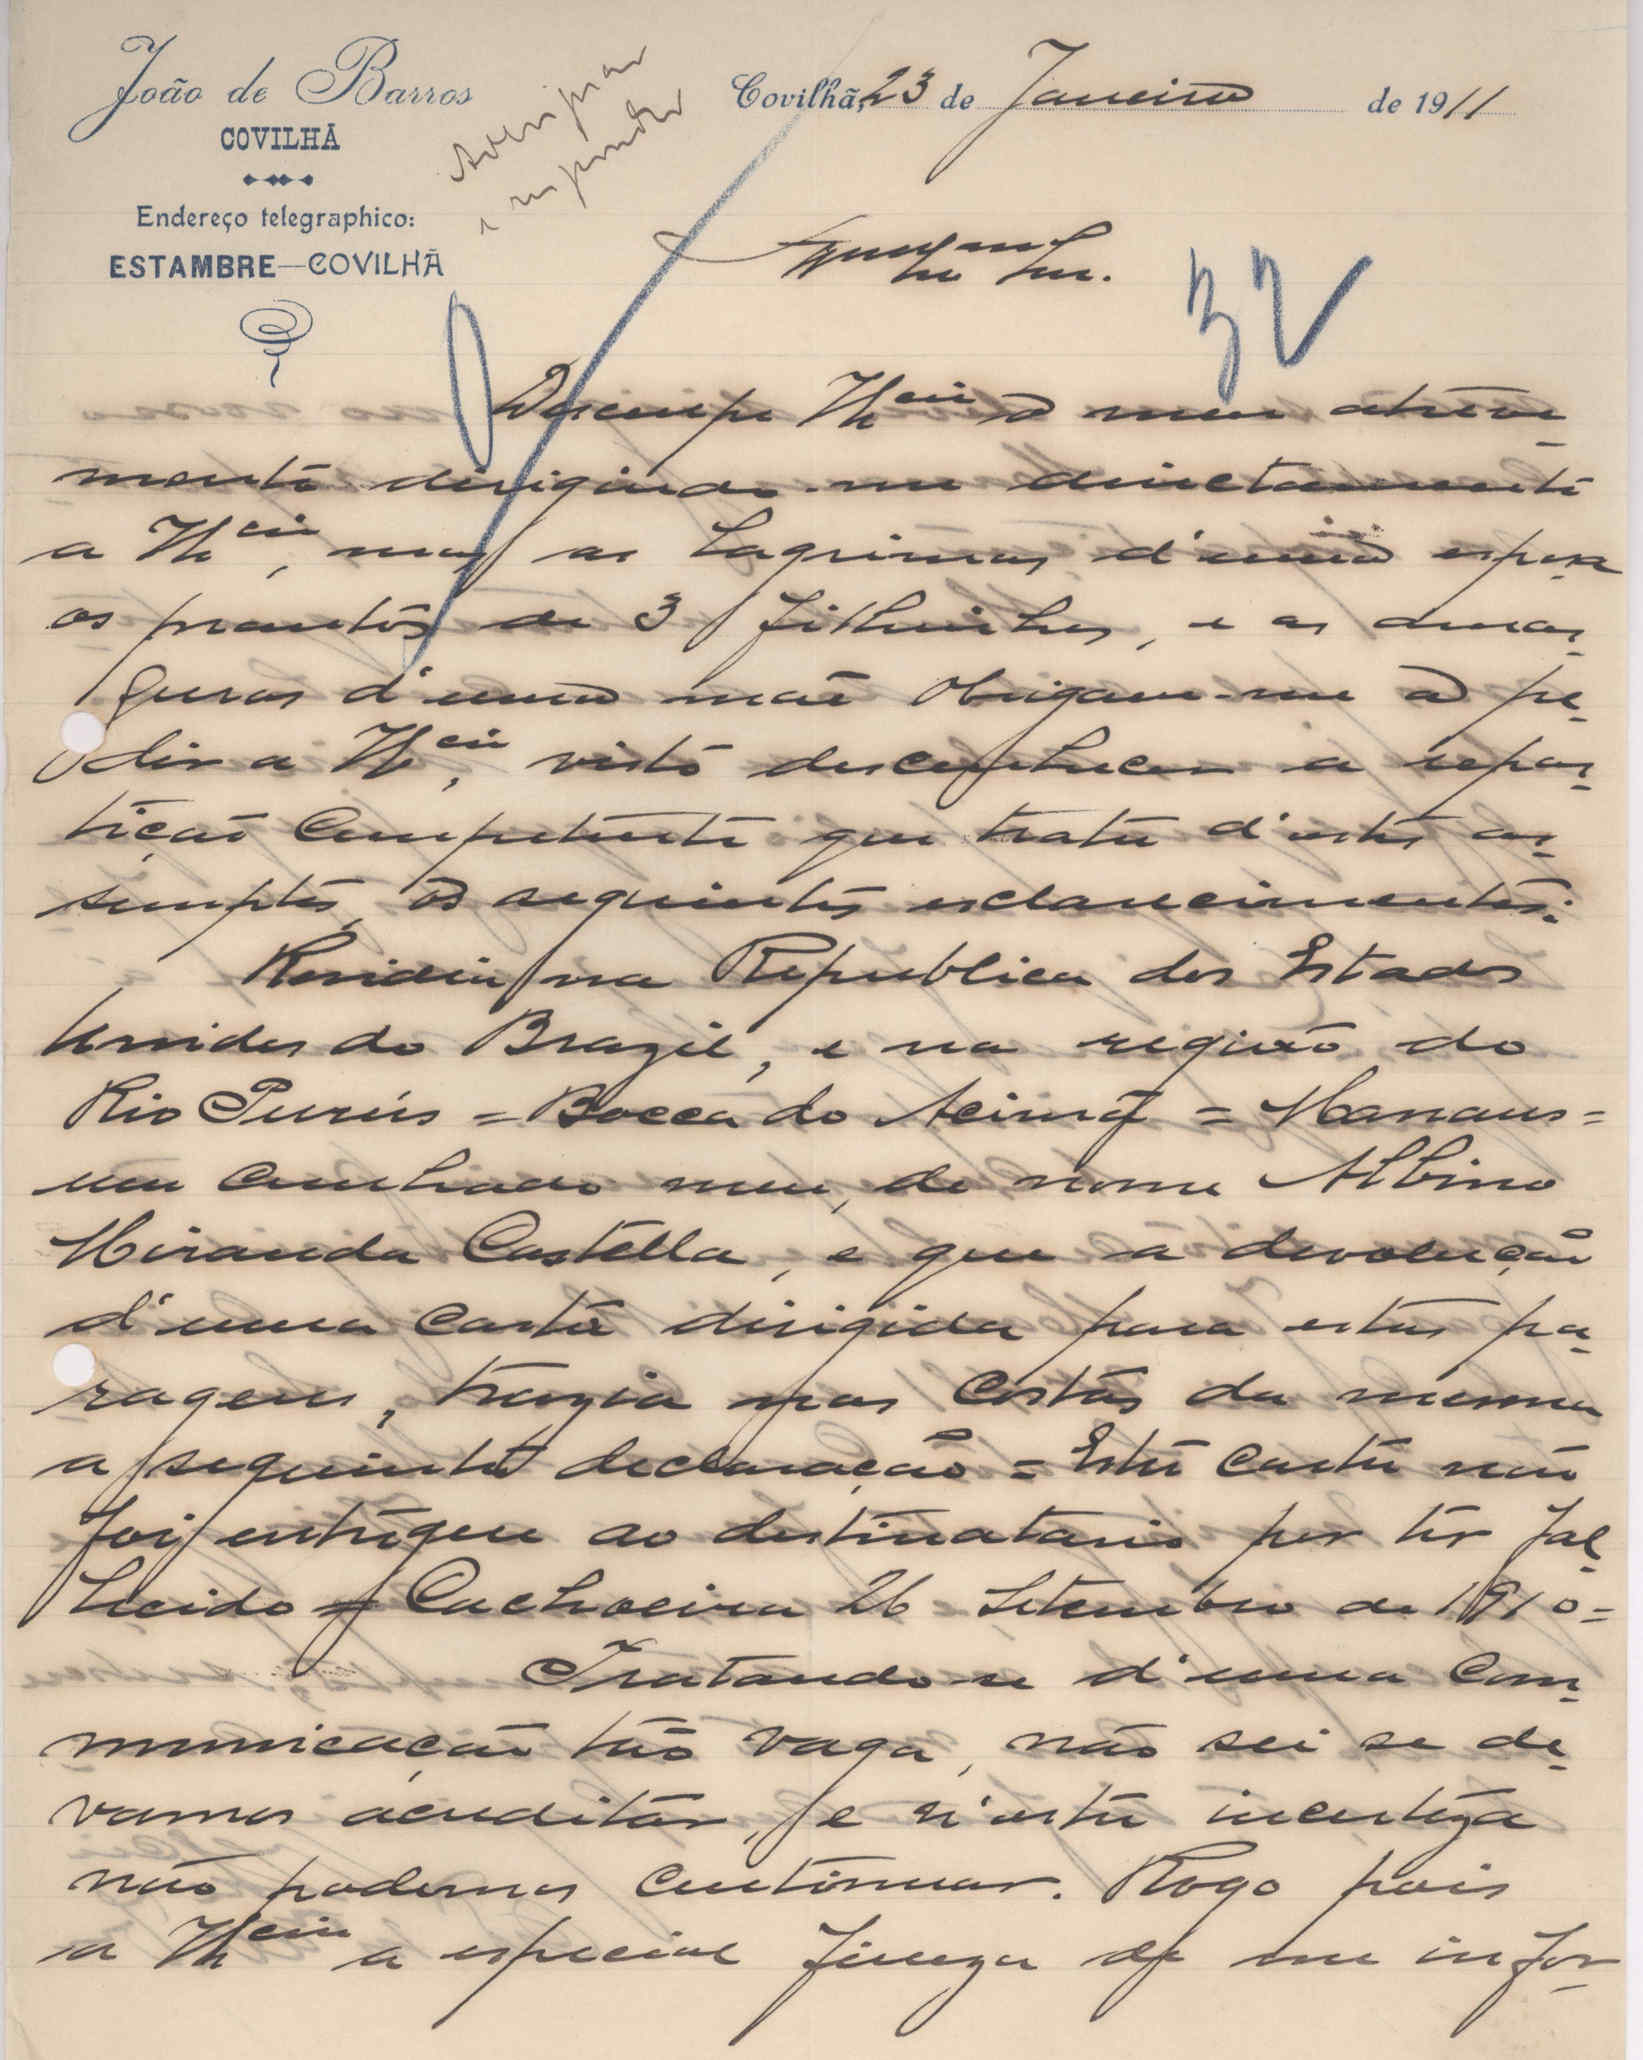 João de Barros
COVILHÃ
Endereço telegraphico:
ESTAMBRE—COVILHÃ
Covilhã, 23 de Janeiro de 1911
32
Desculpe V. Ex.cia o meu atrevi-
mento dirigindo-me directamente
a V. Ex.cia, mas as lagrimas d'uma esposa
os prantos de 3 filhinhos, e as amar-
guras d'uma mãe obrigam-me a pe-
dir a V. Ex.cia, visto desconhecer a repar-
tição competente que trate d'estes as-
sumptos, os seguintes esclarecimentos:
Residia na Republica dos Estados
Unidos do Brazil, e na região do
Rio Purús = Bocca do Acimã = Manaus =
um cunhado meu, de nome Albino
Miranda Castella, e que a devolução
d'uma carta dirigida para estas pa-
ragens, trazia nas costas da mesma
a seguinte declaração = Esta carta não
foi entregue ao destinatario por ter fal-
lecido = Cachoeira 26 Setembro de 1910 =
Tratando-se d'uma com-
municação tão vaga, não sei se de-
vamos acreditar, e n'esta incerteza
não podemos continuar. Rogo pois
a V. Ex.cia a especial fineza de me infor-